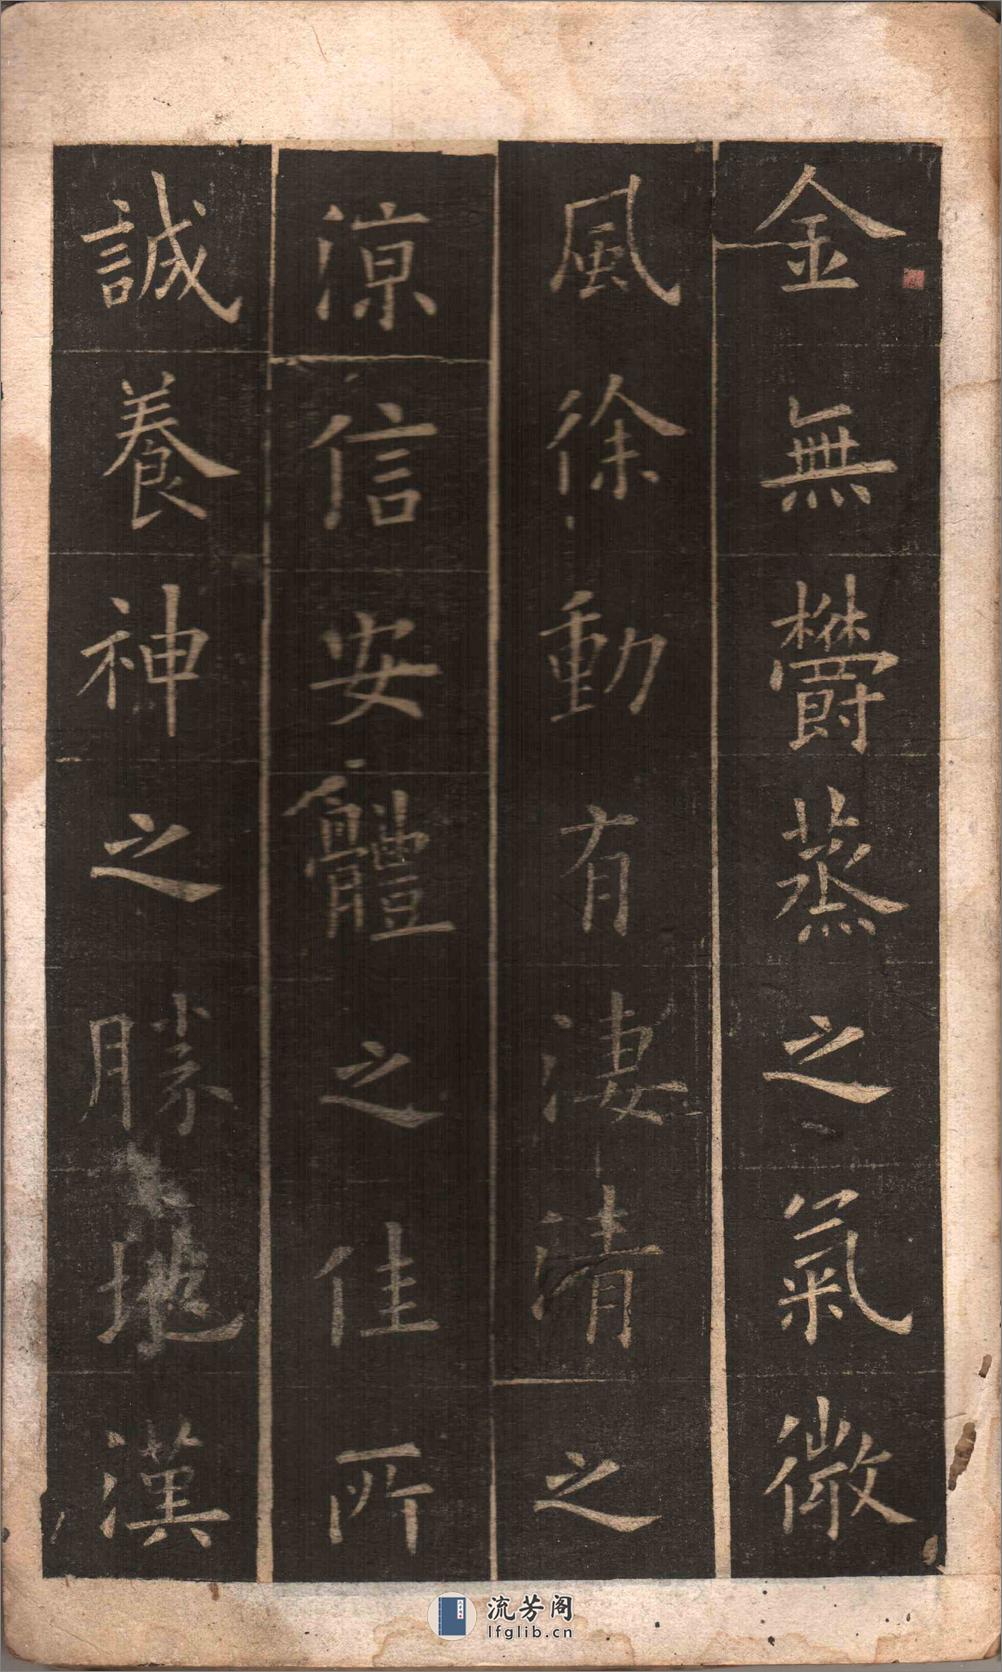 金無欝蒸之氣微
風徐動有凄清之
涼信安體之佳所
誠養神之勝地漢
流芳阁
lfglib.cn